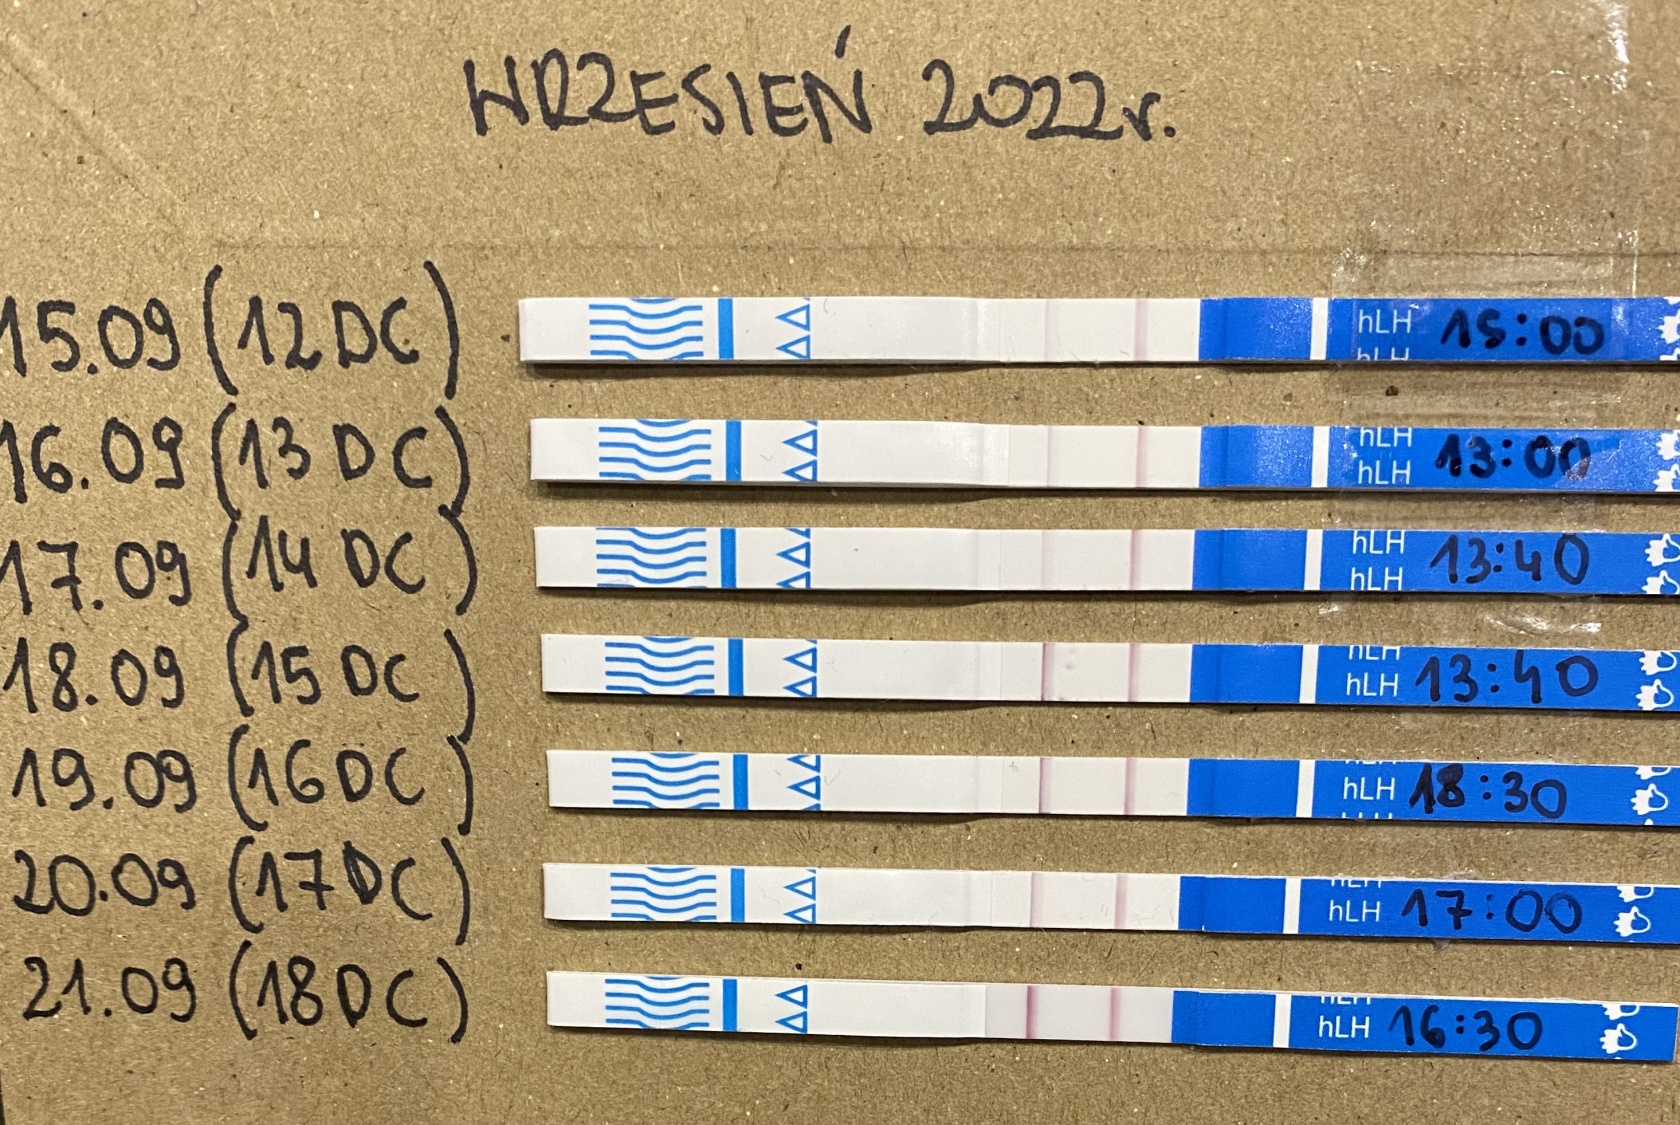 WRZESIEŃ 2022r.
15.09 (12 DC) hLH 15:00
hLH
16.09 (13 DC) hLH 13:00
hLH
17.09 (14 DC) hLH 13:40
hLH
18.09 (15 DC) hLH 13:40
hLH
19.09 (16 DC) hLH 18:30
20.09 (17 DC) hLH 17:00
hLH
21.09 (18 DC) hLH 16:30
hLH